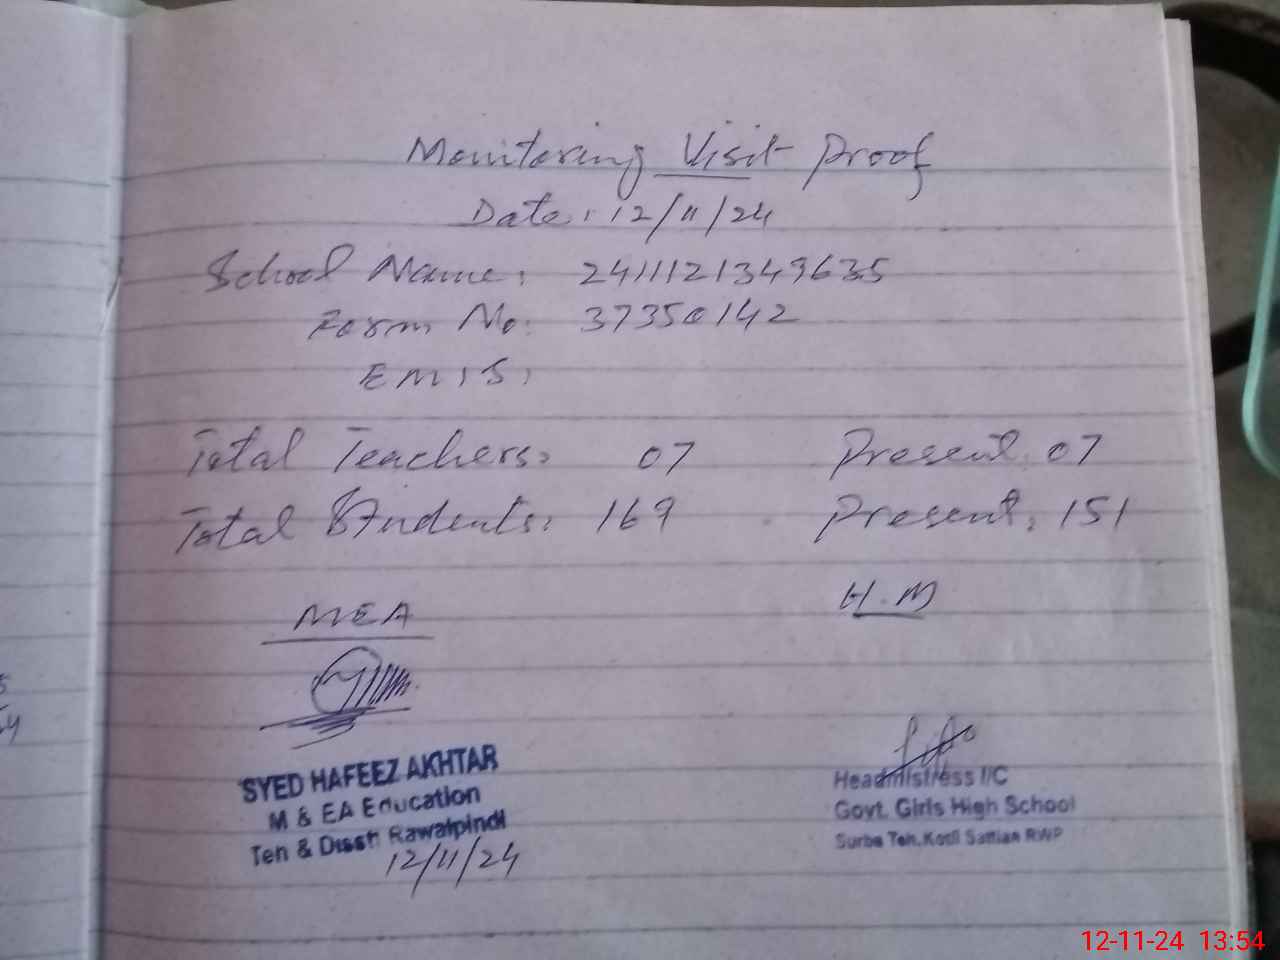 Monitoring Visit Proof
Date: 12/11/24
School Name: 2411121349635
Form No: 37350142
EMIS:
Total Teachers: 07 Present: 07
Total Students: 169 Present: 151
MEA H.M
SYED HAFEEZ AKHTAR
M & EA Education
Teh & Disstt Rawalpindi
12/11/24
Headmistress I/C
Govt. Girls High School
Surba Teh. Kotli Sattian RWP
12-11-24 13:54